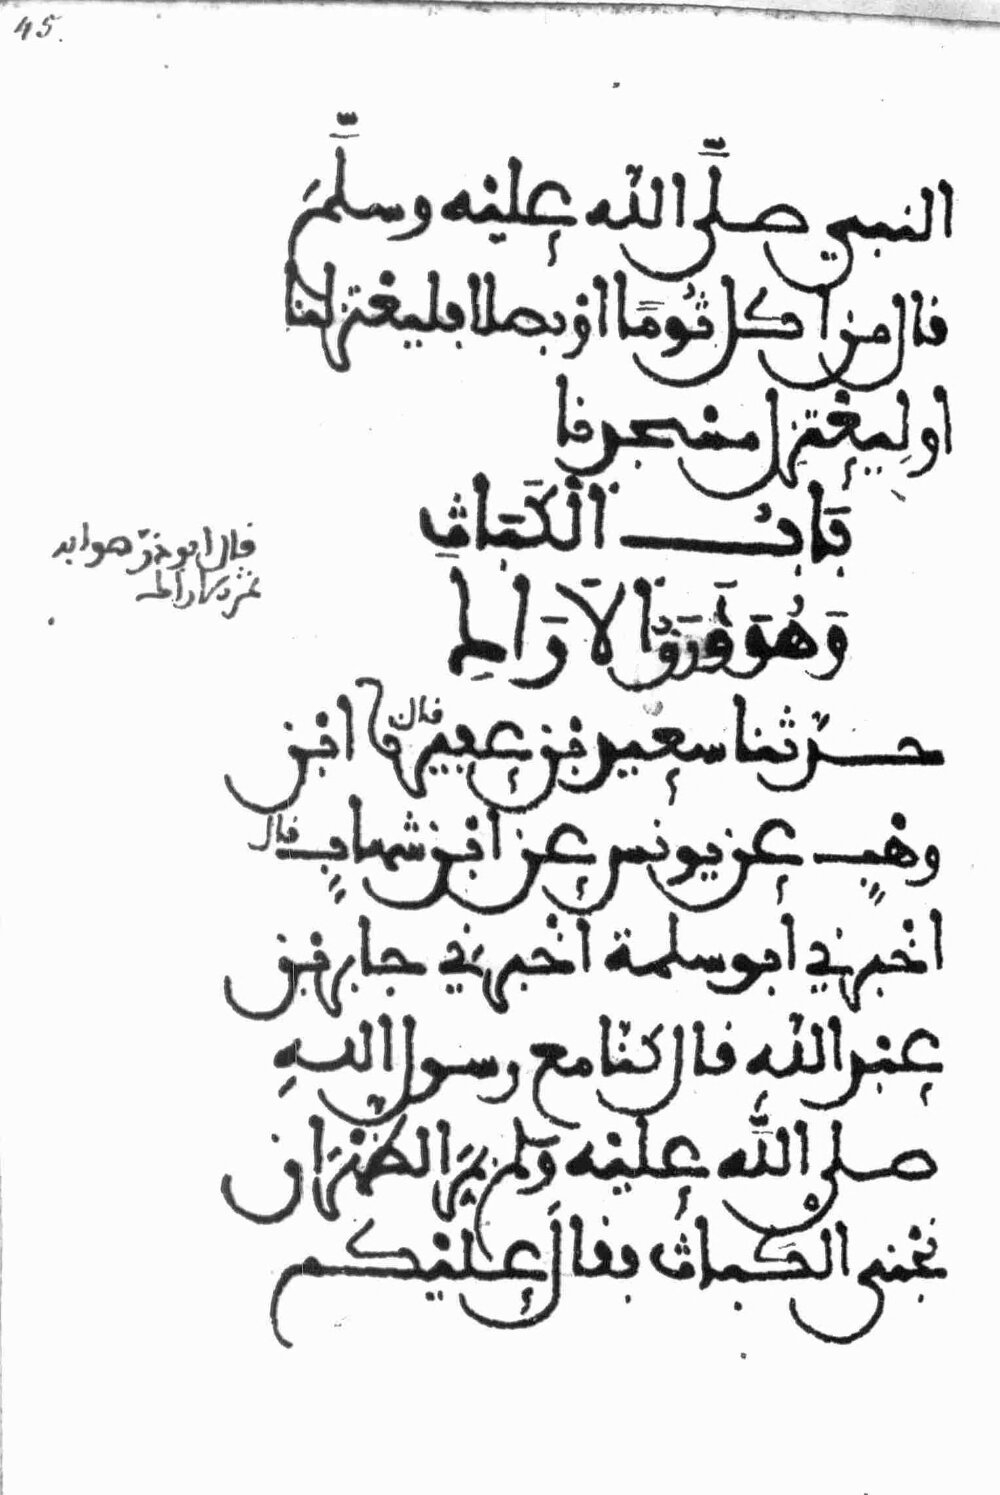 45.
النبي صلى الله عليه وسلم
قال من اكل ثوما او بصلا فليعتزلنا
او ليعتزل مسجدنا
باب الكباث
وهو ورق الاراك
حدثنا سعيد بن عفير قال نا ابن
وهب عن يونس عن ابن شهاب قال
اخبرني ابو سلمة اخبرني جابر بن
عبد الله قال كنا مع رسول الله
صلى الله عليه وسلم بمر الظهران
نجني الكباث فقال عليكم
قال ابو ذر هو
ثمر الاراك